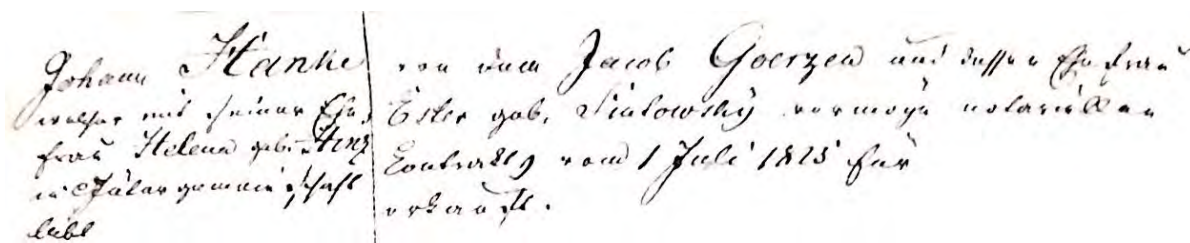 Johann Hanke
welcher mit seiner Ehe,
frau Helena geb. Hinz
in Gütergemeinschaft
lebt
von dem Jacob Goerzen und dessen Ehefrau
Ester geb. Siutowsky vermöge notariellen
Contrakts vom 1 Juli 1825 für
erkauft.